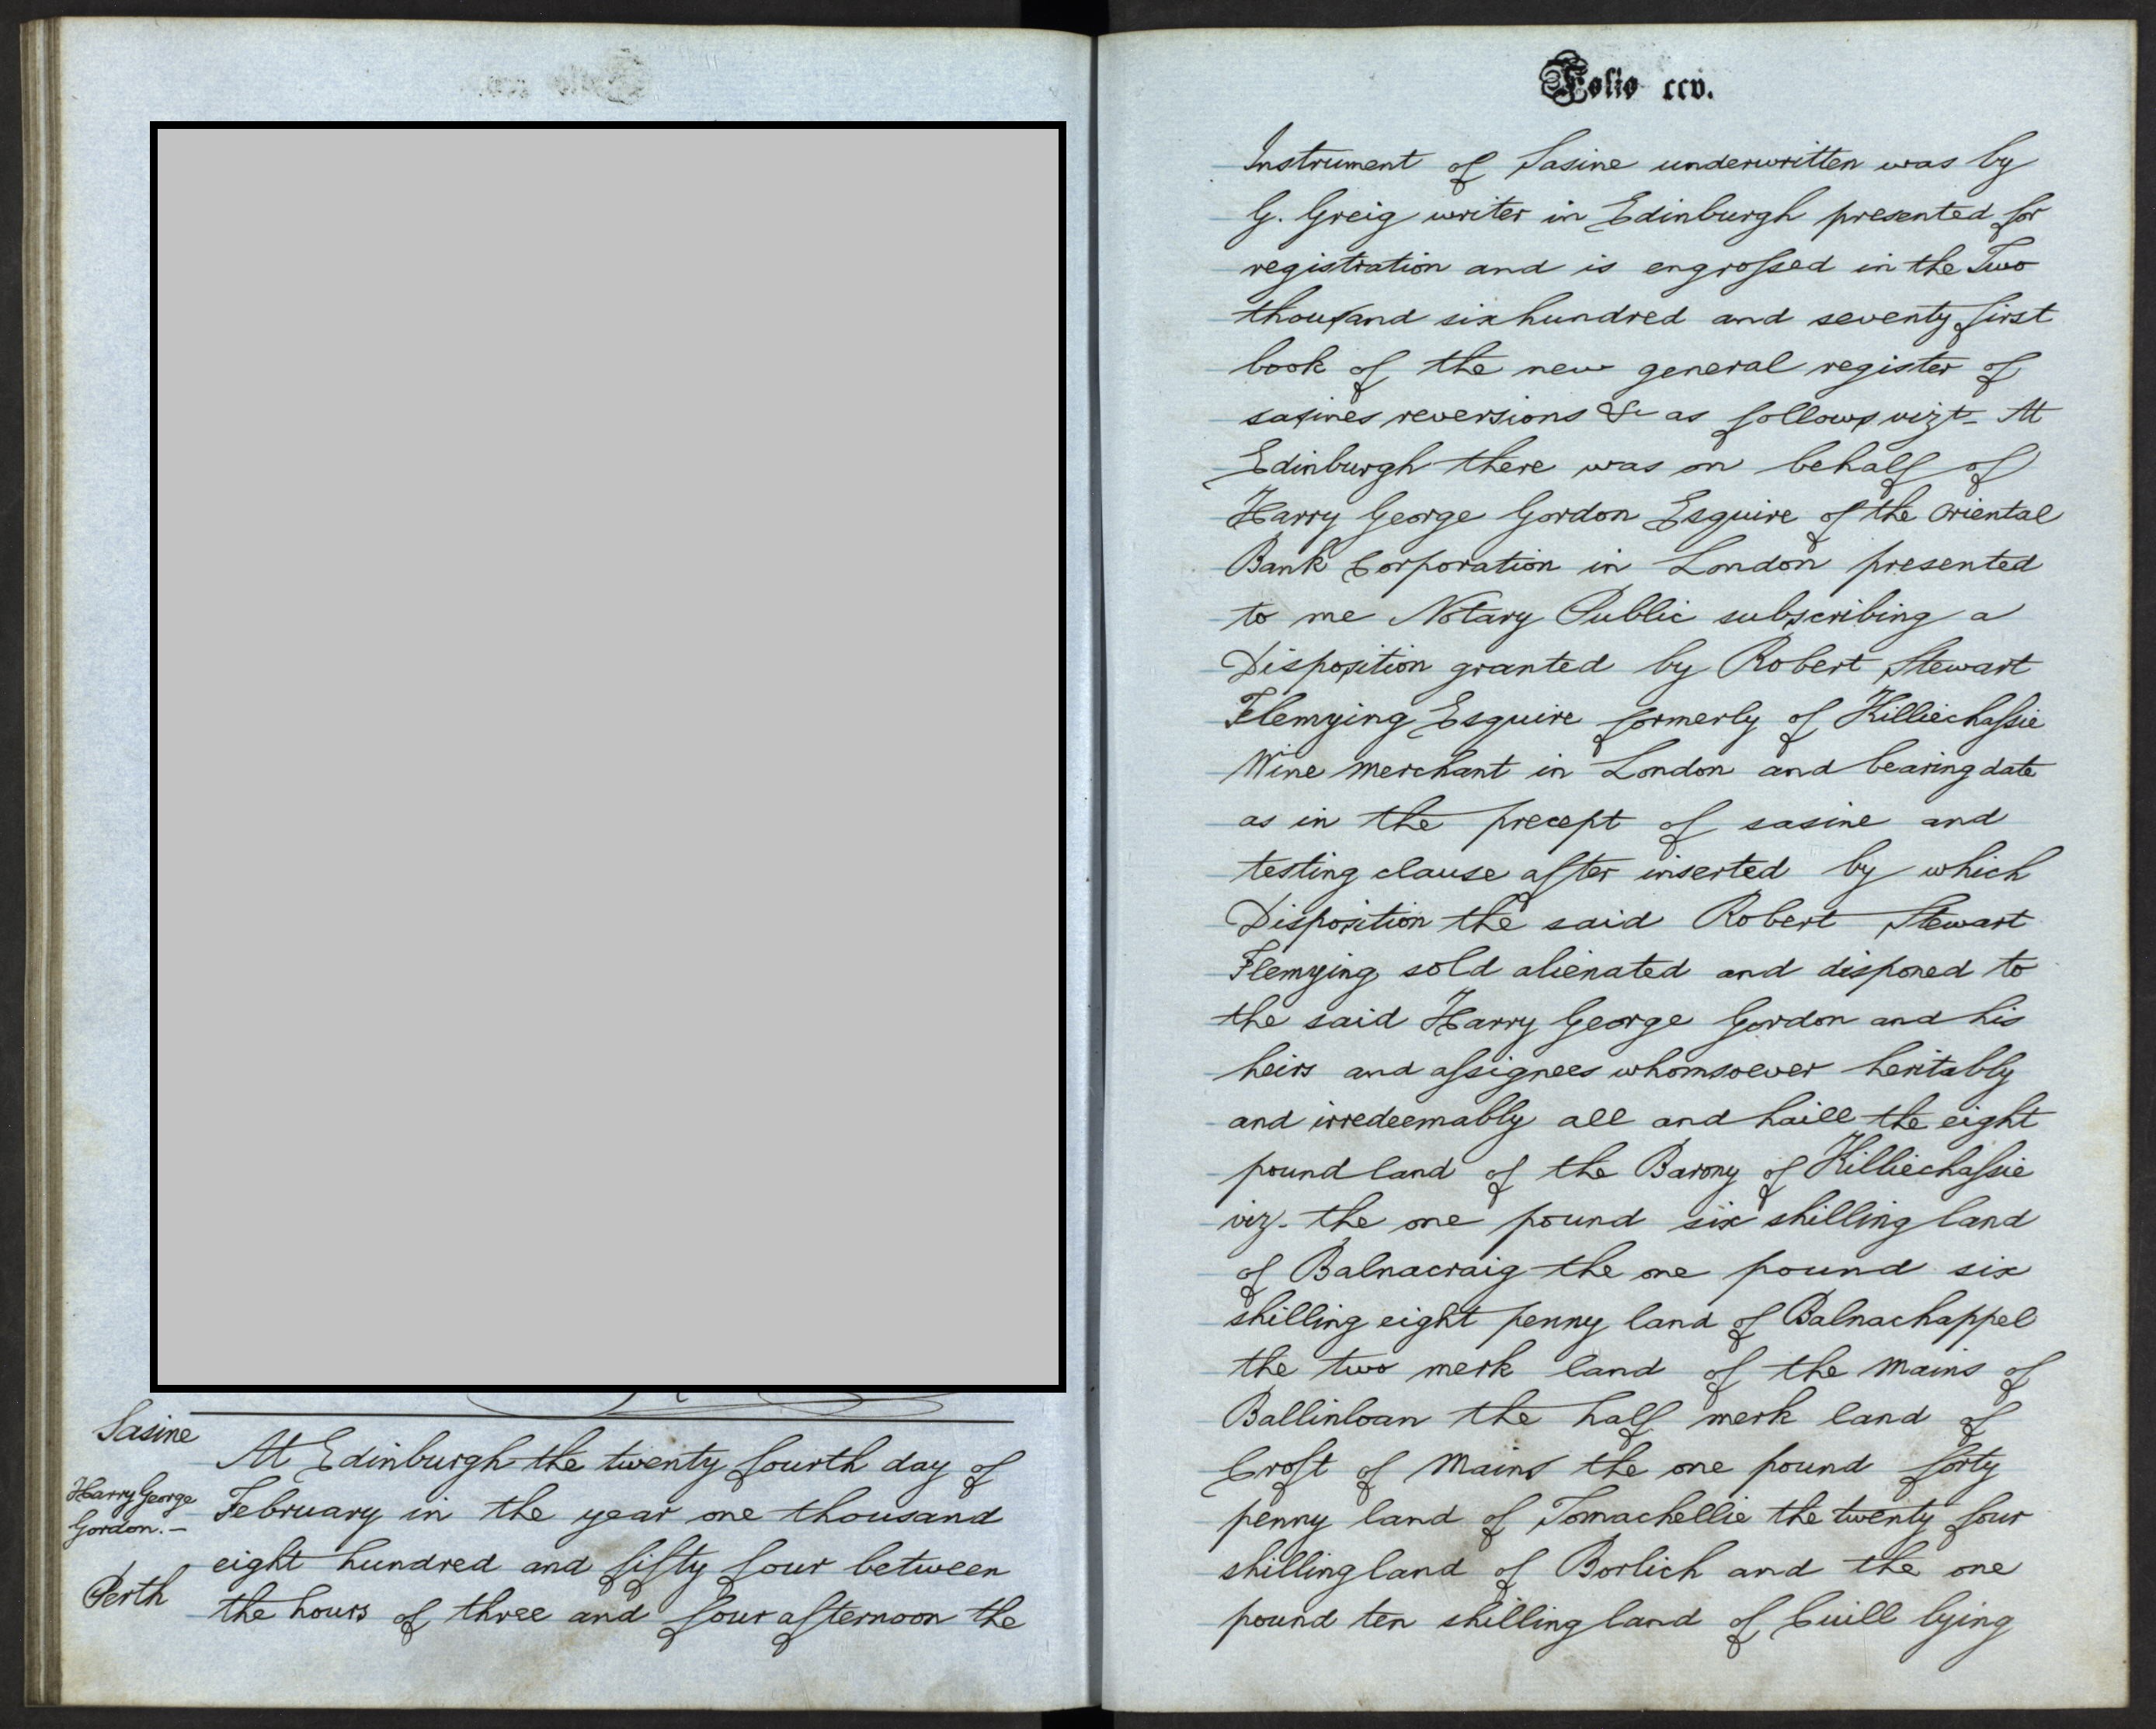 Sasine
Harry George
Gordon. –
Perth
At Edinburgh the twenty fourth day of
February in the year one thousand
eight hundred and fifty four between
the hours of three and four afternoon the
Folio ccv.
Instrument of Sasine underwritten was by
G. Greig writer in Edinburgh presented for
registration and is engrossed in the Two
thousand six hundred and seventy first
book of the new general register of
sasines reversions &c as follows vizt– At
Edinburgh there was on behalf of
Harry George Gordon Esquire of the Oriental
Bank Corporation in London presented
to me Notary Public subscribing a
Disposition granted by Robert Stewart
Flemying Esquire formerly of Killiechassie
Wine Merchant in London and bearing date
as in the precept of sasine and
testing clause after inserted by which
Disposition the said Robert Stewart
Flemying sold alienated and disponed to
the said Harry George Gordon and his
heirs and assignees whomsoever heritably
and irredeemably all and haill the eight
pound land of the Barony of Killiechassie
viz– the one pound six shilling land
of Balnacraig the one pound six
shilling eight penny land of Balnachappel
the two merk land of the Mains of
Ballinloan the half merk land of
Croft of Mains the one pound forty
penny land of Tomachellie the twenty four
shilling land of Borlich and the one
pound ten shilling land of Cuill lying